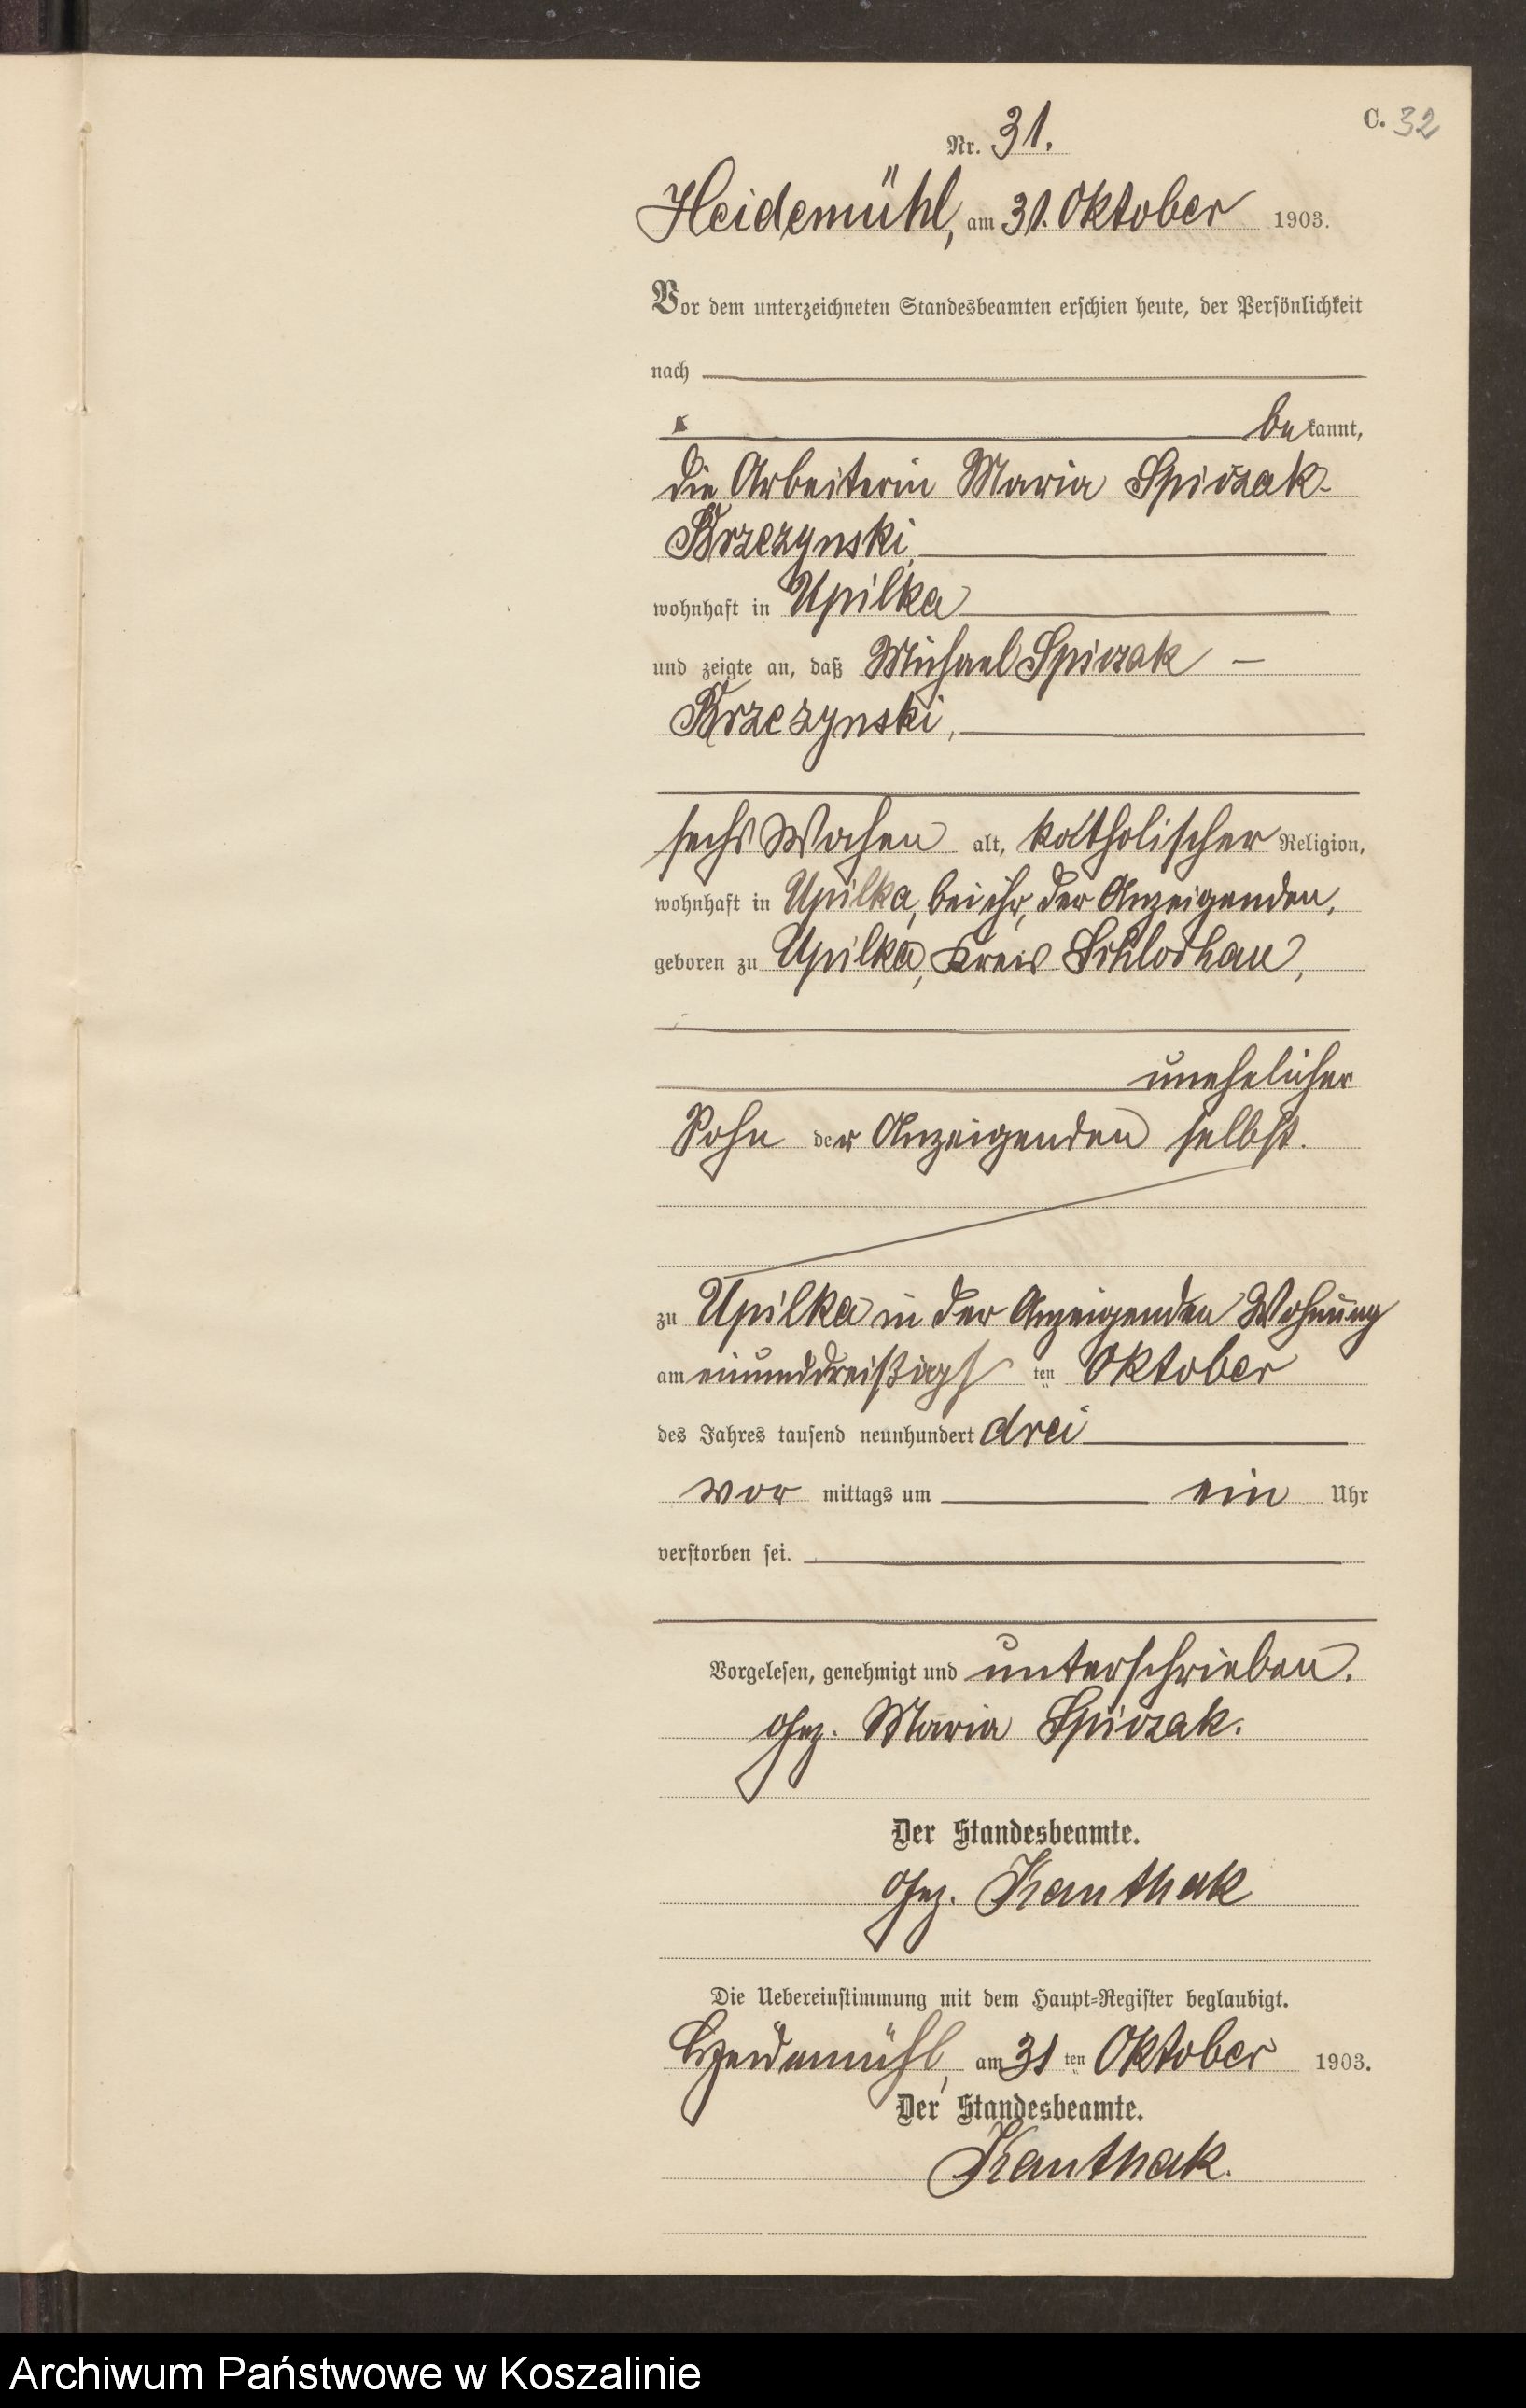 C. 32
Nr. 31.
Heidemühl, am 31. Oktober 1903.
Vor dem unterzeichneten Standesbeamten erschien heute, der Persönlichkeit
nach
bekannt,
die Arbeiterin Maria Spiczak-
Brzezynski,
wohnhaft in Upilka
und zeigte an, daß Michael Spiczak –
Brzezynski,
sechs Wochen alt, katholischer Religion,
wohnhaft in Upilka, bei ihr, der Anzeigenden,
geboren zu Upilka, Kreis Schlochau,
unehelicher
Sohn der Anzeigenden selbst.
zu Upilka in der Anzeigenden Wohnung
am einunddreißigsten Oktober
des Jahres tausend neunhundert drei
vor mittags um ein Uhr
verstorben sei.
Vorgelesen, genehmigt und unterschrieben.
Gez. Maria Spiczak.
Der Standesbeamte.
Gez. Kanthak
Die Uebereinstimmung mit dem Haupt-Register beglaubigt.
Heidemühl, am 31 ten Oktober 1903.
Der Standesbeamte.
Kanthak.
Archiwum Państwowe w Koszalinie